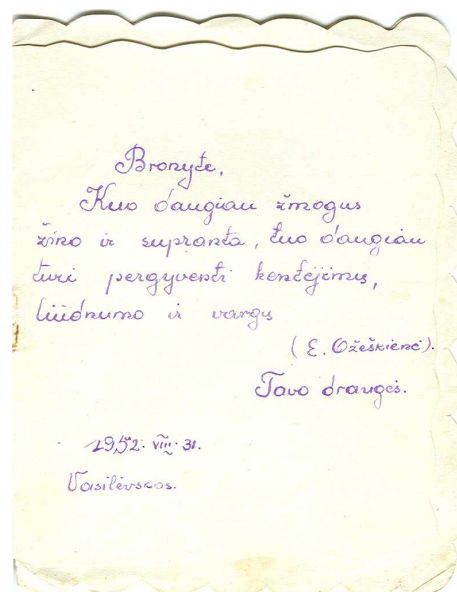 Bronyte,
Kuo daugiau žmogus
žino ir supranta, tuo daugiau
turi pergyventi kentėjimų,
liūdnumo ir vargų
(E. Ožeškienė).
Tavo draugės.
1952. VIII. 31.
Vasilėvscos.